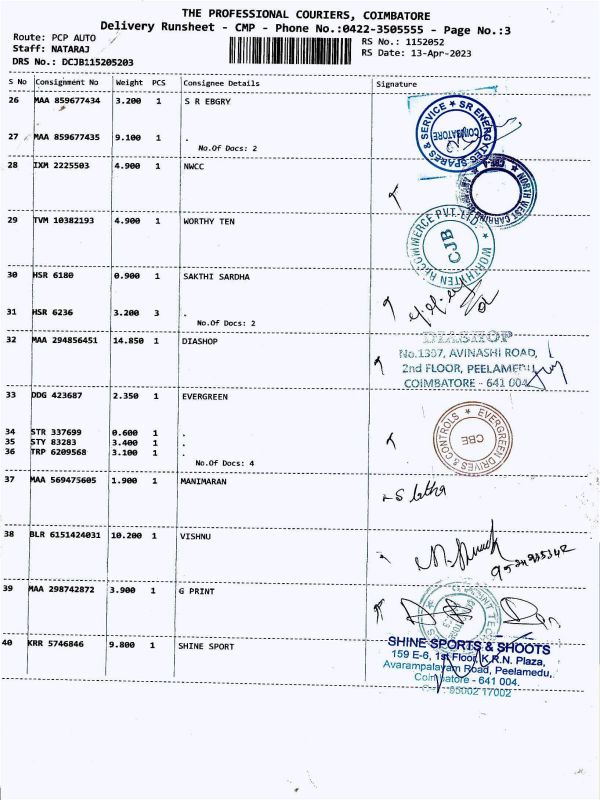 THE PROFESSIONAL COURIERS, COIMBATORE
Delivery Runsheet - CMP - Phone No.:0422-3505555 - Page No.:3
Route: PCP AUTO
RS No.: 1152052
Staff: NATARAJ
RS Date: 13-Apr-2023
DRS No.: DCJB115205203
S No Consignment No Weight PCS Consignee Details Signature
26 MAA 859677434 3.200 1 S R EBGRY
SR ENERGYTEC SPARES & SERVICE ★
COIMBATORE
27 MAA 859677435 9.100 1 .
No.Of Docs: 2
28 IXM 2225503 4.900 1 NWCC
NORTH WEST
29 TVM 10382193 4.900 1 WORTHY TEN
COMMERCE PVT. LTD. ★ WORTHXTEN
CJB
30 HSR 6180 0.900 1 SAKTHI SARDHA
31 HSR 6236 3.200 3 .
No.Of Docs: 2
32 MAA 294856451 14.850 1 DIASHOP
DIASHOP
No.1307, AVINASHI ROAD,
2nd FLOOR, PEELAMEDU,
COIMBATORE - 641 004
33 DDG 423687 2.350 1 EVERGREEN
★ EVERGREEN DRIVES & CONTROLS
CBE
34 STR 337699 0.600 1 .
35 STY 83283 3.400 1 .
36 TRP 6209568 3.100 1 .
No.Of Docs: 4
37 MAA 569475605 1.900 1 MANIMARAN
38 BLR 6151424031 10.200 1 VISHNU
39 MAA 298742872 3.900 1 G PRINT
40 KRR 5746846 9.800 1 SHINE SPORT
SHINE SPORTS & SHOOTS
159 E-6, 1st Floor, K.R.N. Plaza,
Avarampalayam Road, Peelamedu,
Coimbatore - 641 004.
95002 17002